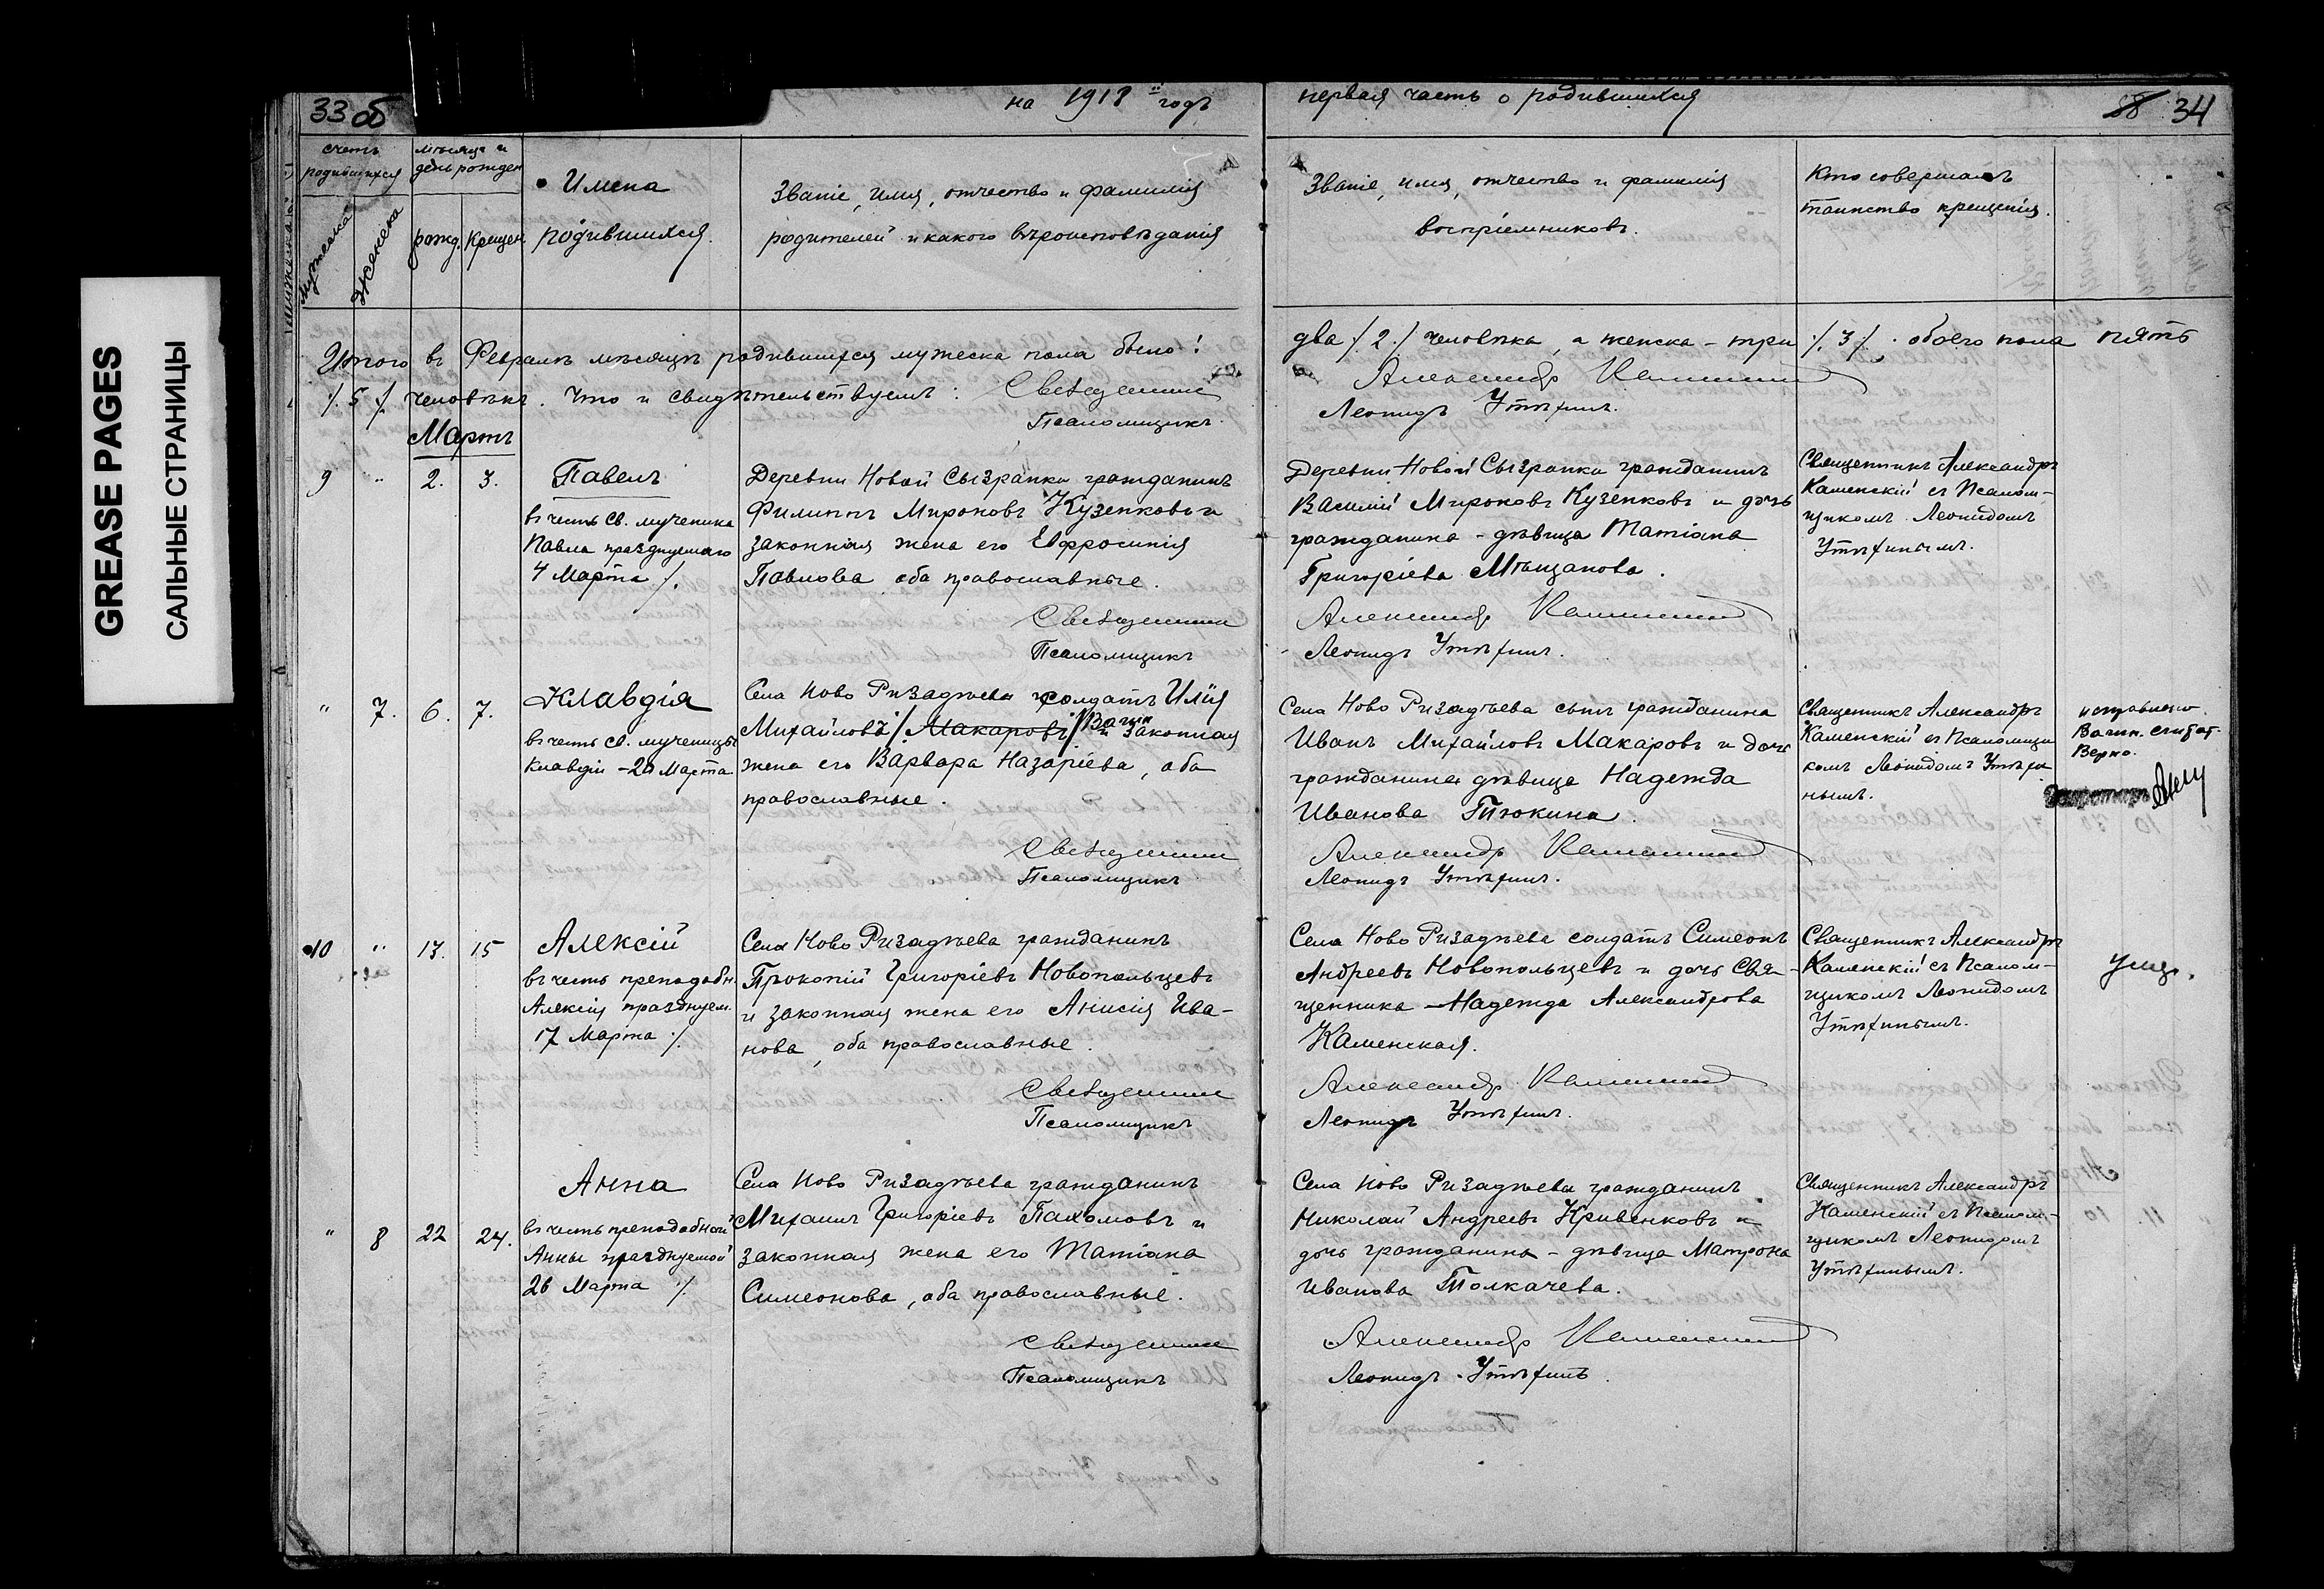 GREASE PAGES
САЛЬНЫЕ СТРАНИЦЫ
33 об
на 1918 годъ
счетъ
родившихся
мѣсяцъ и
день рожден
мужеска
женска
рожд.
крещен.
Имена
родившихся.
Званіе, имя, отчество и фамилія
родителей и какого вѣроисповѣданія
Итого въ Февралѣ мѣсяцѣ родившихся мужеска пола было:
/. 5 /. человѣкъ. Что и свидѣтельствуемъ: Священникъ
Псаломщикъ
Мартъ
9 " 2. 3.
Павелъ
въ честь св. мученика
Павла празднуемаго
4 Марта /.
Деревни Новой Сызранки гражданинъ
Филиппъ Мироновъ Кузенковъ и
законная жена его Евфросинія
Павлова, оба православные.
Священникъ
Псаломщикъ
" 7. 6. 7.
Клавдія
въ честь св. мученицы
Клавдіи - 20 Марта
Села Ново Ризадѣева солдатъ Илія
Михайловъ /. Макаровъ / Вагин и законная
жена его Варвара Назаріева, оба
православные.
Священникъ
Псаломщикъ
10 " 13. 15
Алексій
въ честь преподобн.
Алексія празднуем.
17 Марта /.
Села Ново Ризадѣева гражданинъ
Прокопій Григоріевъ Новопольцевъ
и законная жена его Анисія Ива-
нова, оба православные.
Священникъ
Псаломщикъ
" 8 22 24.
Анна
въ честь преподобной
Анны празднуемой
26 Марта /.
Села Ново Ризадѣева гражданинъ
Михаилъ Григоріевъ Пахомовъ и
законная жена его Татіана
Симеонова, оба православные.
Священникъ
Псаломщикъ
первая часть о родившихся
34
Званіе, имя, отчество и фамилія
воспріемниковъ.
Кто совершалъ
таинство крещенія.
два /. 2 /. человѣка, а женска - три /. 3 /. обоего пола пять
Александръ Каменскій
Леонидъ Утѣхинъ.
Деревни Новой Сызранки гражданинъ
Василій Мироновъ Кузенковъ и дочь
гражданина - дѣвица Татіана
Григоріева Мѣщанова.
Александръ Каменскій
Леонидъ Утѣхинъ.
Священникъ Александръ
Каменскій съ Псалом-
щикомъ Леонидомъ
Утѣхинымъ.
Села Ново Ризадѣева сынъ гражданина
Иванъ Михайловъ Макаровъ и дочь
гражданина дѣвица Надежда
Иванова Тюкина.
Александръ Каменскій
Леонидъ Утѣхинъ.
Священникъ Александръ
Каменскій съ Псаломщи
комъ Леонидомъ Утѣхи
нымъ.
исправлено
Вагин. считат.
Верно.
Села Ново Ризадѣева солдатъ Симеонъ
Андреевъ Новопольцевъ и дочь Свя-
щенника - Надежда Александрова
Каменская.
Александръ Каменскій
Леонидъ Утѣхинъ.
Священникъ Александръ
Каменскій съ Псалом-
щикомъ Леонидомъ
Утѣхинымъ.
Села Ново Ризадѣева гражданинъ
Николай Андреевъ Кривенковъ и
дочь гражданина - дѣвица Матрона
Иванова Толкачева.
Александръ Каменскій
Леонидъ Утѣхинъ.
Священникъ Александръ
Каменскій съ Псалом-
щикомъ Леонидомъ
Утѣхинымъ.